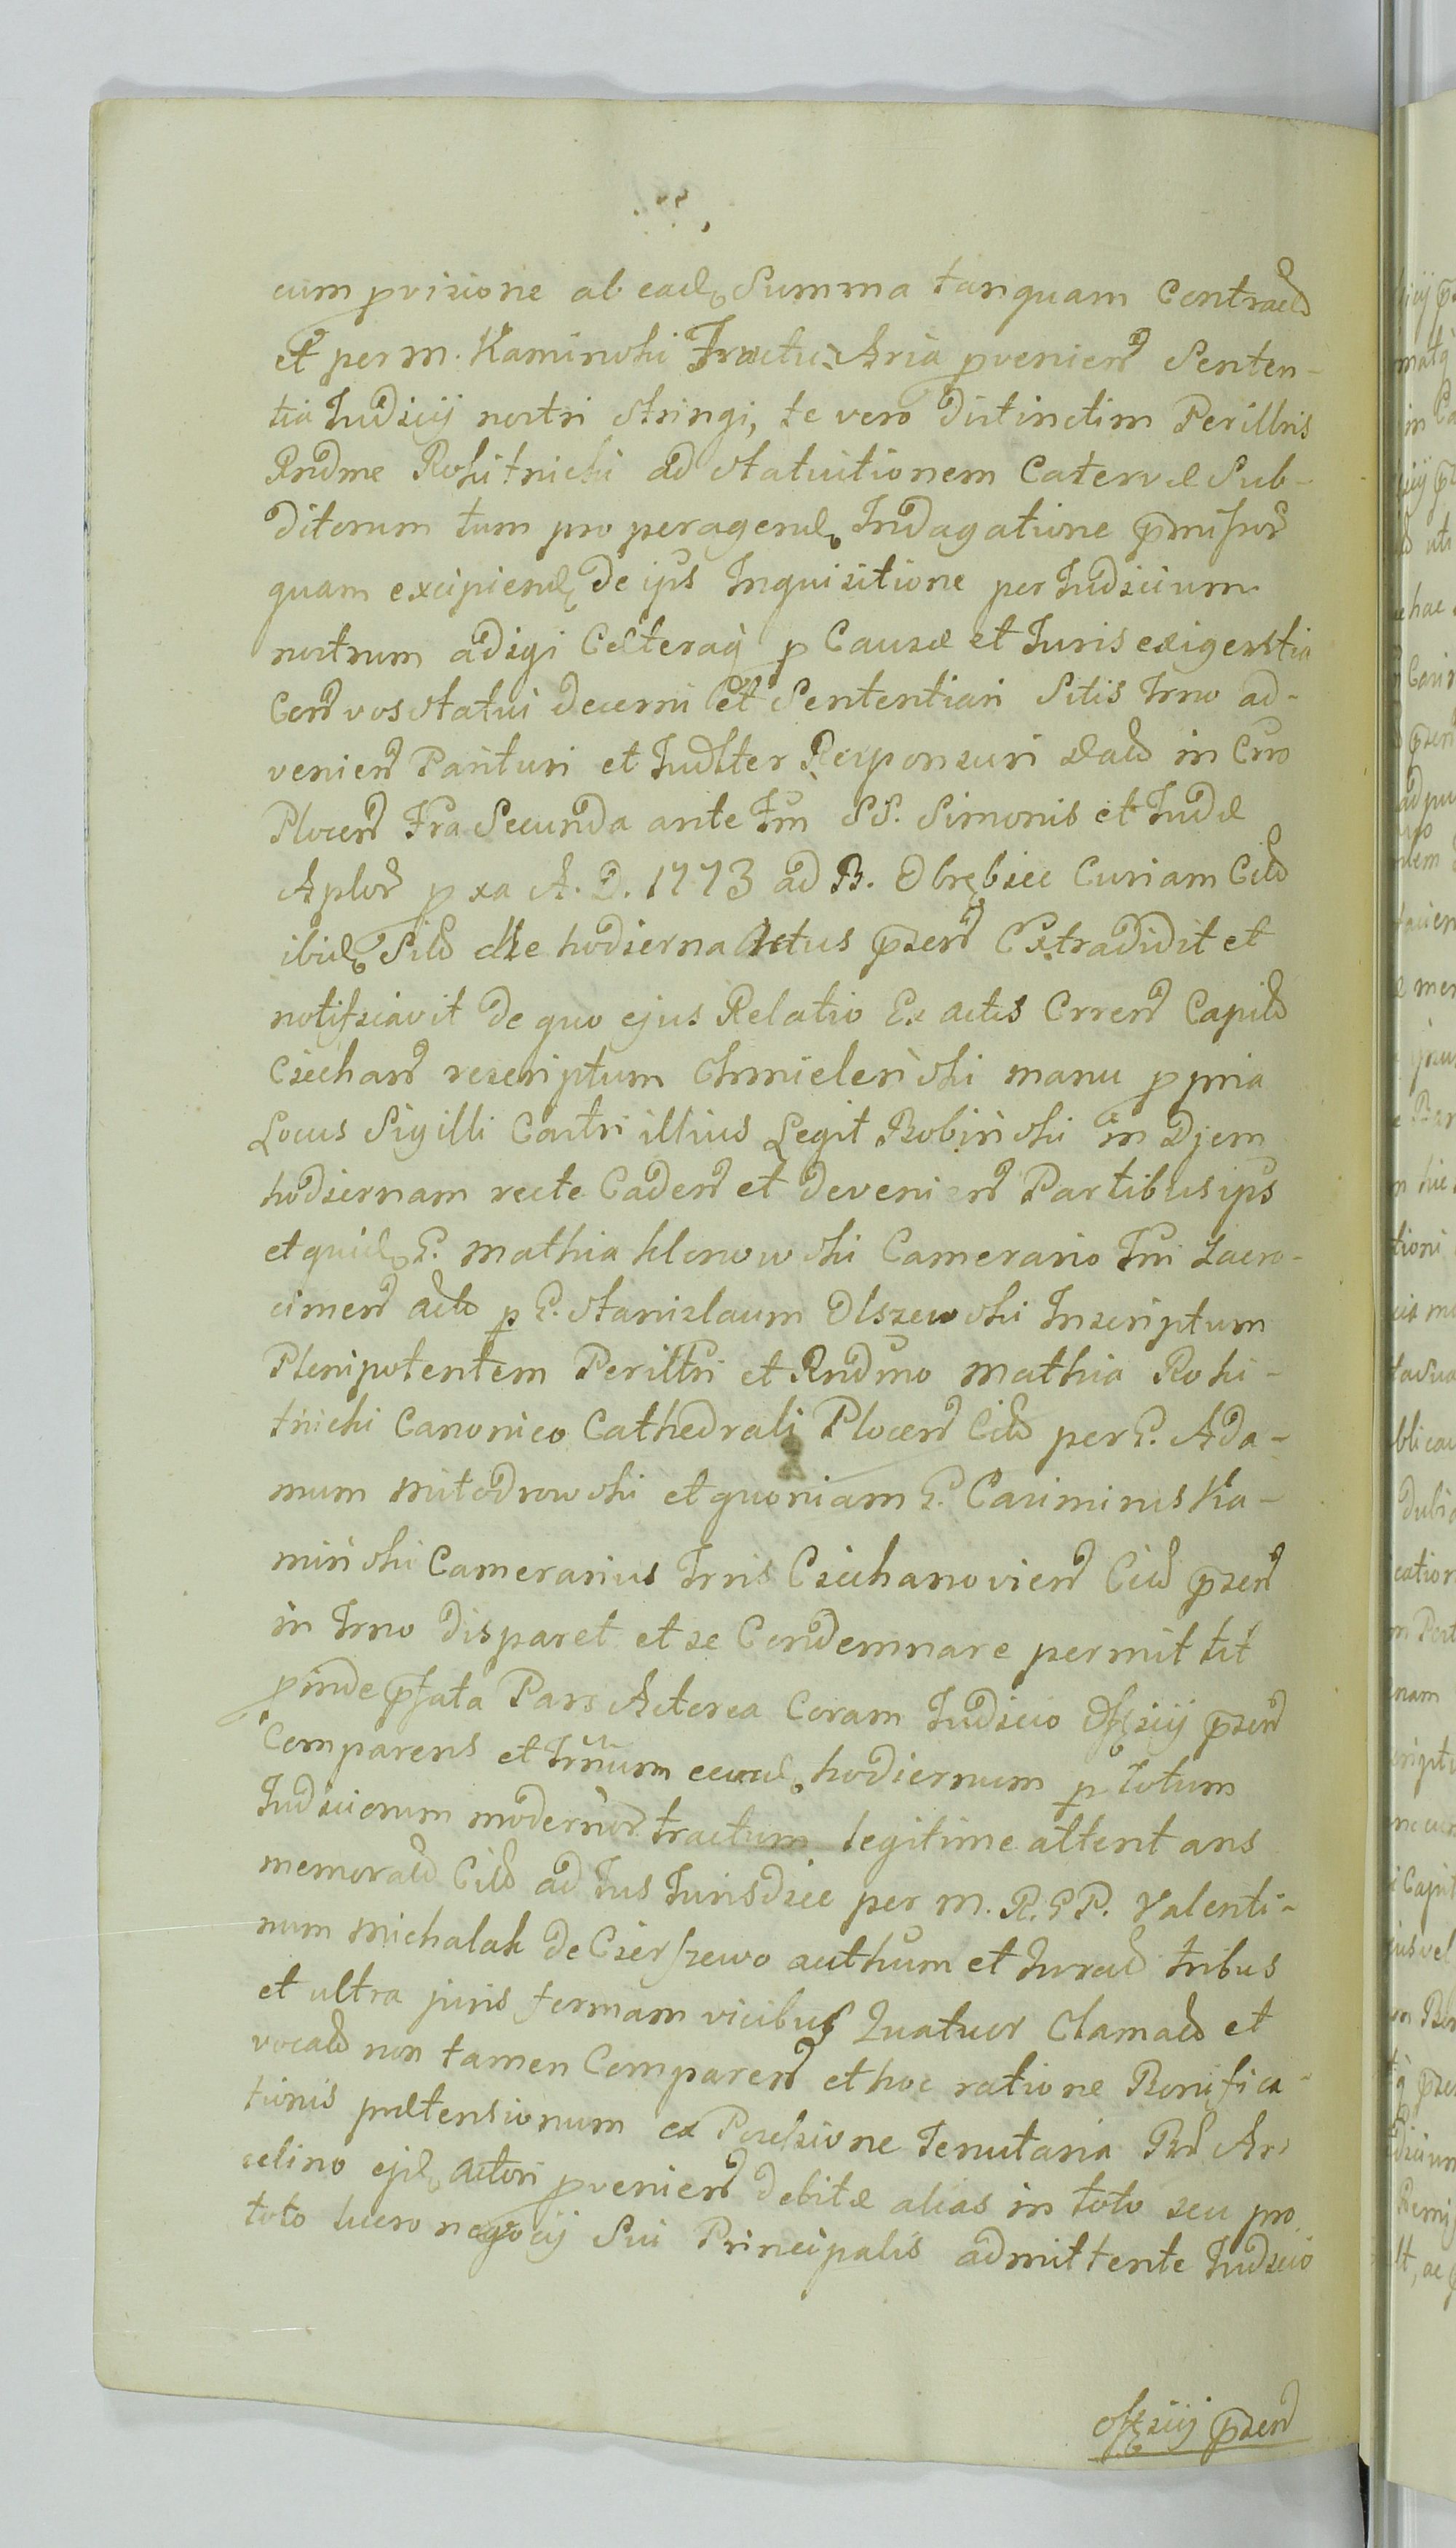 cum pvisione ab ead. Summa tanquam Contract
et per M. Kaminski Fructuaria pvenien Senten-
tia Judicij nostri stringi, te vero distinctim Perillris
Rndme Rokitnicki ad statuitionem Catervæ Sub-
ditorum tum pro peragend. Indagatione pmissor
quam excipiend. de ips Inquisitione per Judicium
nostrum adigi Cæteraq p Causæ et Juris exigentia
Con vos statui decerni et Sententiari Sitis Trno ad-
venien Parituri et Judlter Responsuri Dat in Crro
Plocen Fra Secunda ante Fm SS. Simonis et Judæ
Aplor p xa A. D. 1773 ad B. Obrębiec Curiam Cit
ibid. Sit die hodierna Actus psen Extradidit et
notificavit de quo ejus Relatio Ex actis Crren Capit
Ciechan rescriptum Chmieleński manu ppria
Locus Sigilli Castri illius Legit Bobiński in Diem
hodiernam recte Caden et devenien Partibus ips
et quid. G. Mathia Klonowski Camerario Tri Zacro-
cimen act p G. Stanislaum Olszewski Inscriptum
Plenipotentem Perillri et Rndmo Mathia Roki-
tnicki Canonico Cathedrali Plocen Cit per G. Ada-
mum Mitodrowski et quoniam G. Casimirus Ka-
minski Camerarius Trris Ciechanovien Cit psen
in Trno disparet et se Condemnare permittit
pinde pfata Pars Actorea Coram Judicio Officij psen
Comparens et Trnum eund. hodiernum p totum
Judiciorum modernor tractum legitime attentans
memorat Cit ad Jus Jurisdicc per M. R. G P. Valenti-
num Michalak de Czerszewo authum et Jurat tribus
et ultra juris formam vicibus Quatuor Clamat et
vocat non tamen Comparen et hoc ratione Bonifica-
tionis prætensionum ex Possessione Tenutaria
celino ejd. actori pvenien debitæ alias in toto seu pro
toto lucro negocij Sui Principalis admittente Judicio
officij psen